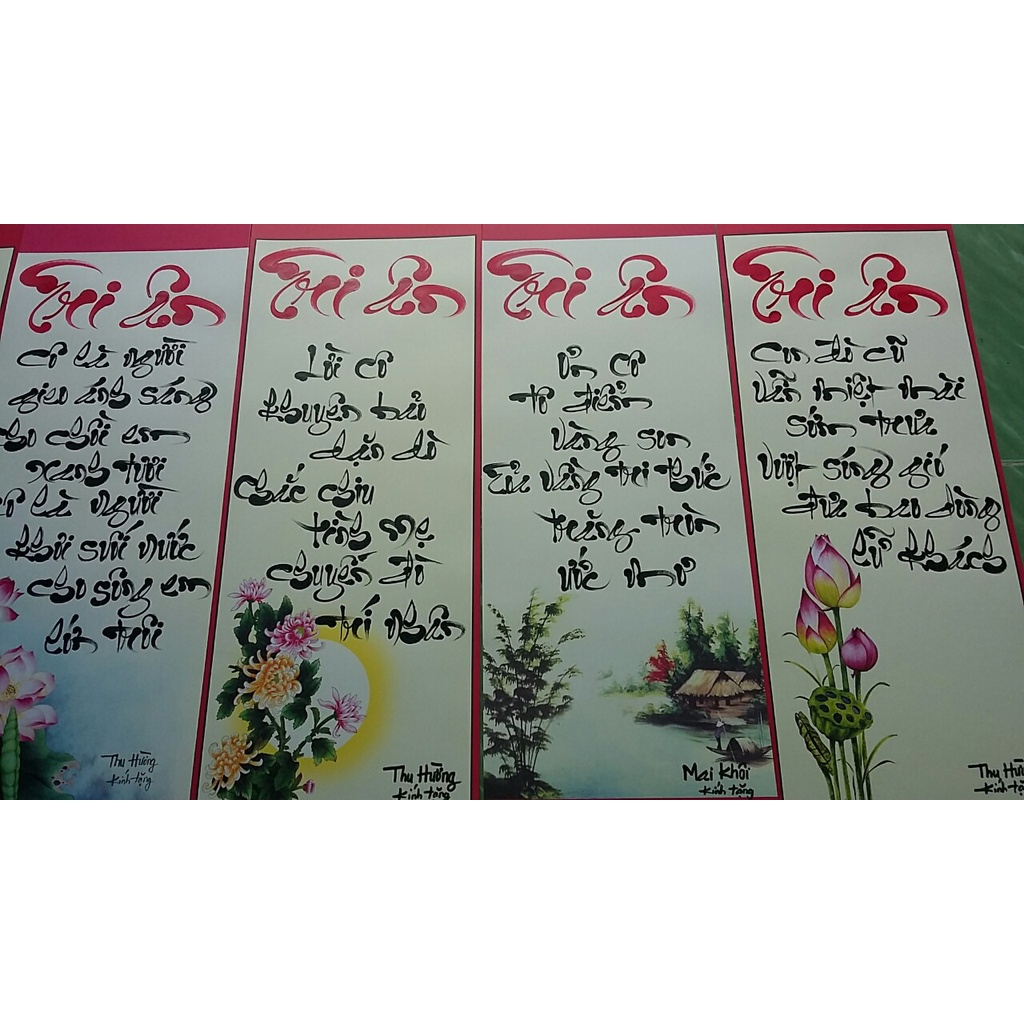 Tri Ân
Cô là người
gieo ánh sáng
cho chồi em
xanh tươi
Cô là người
khơi suối nước
cho sông em
lúa trôi
Thu Hường
kính tặng
Tri Ân
Lời cô
khuyên bảo
dặn dò
Chắc chiu
từng mẹ
chuyến đò
trí nhân
Thu Hường
kính tặng
Tri Ân
Ơn cô
tô điểm
vàng son
Tủ vàng tri thức
trăng tròn
ước mơ
Mai Khôi
kính tặng
Tri Ân
Con đò cũ
vẫn miệt mài
sớm trưa
Vượt sóng gió
đưa bao dòng
lữ khách
Thu
kính